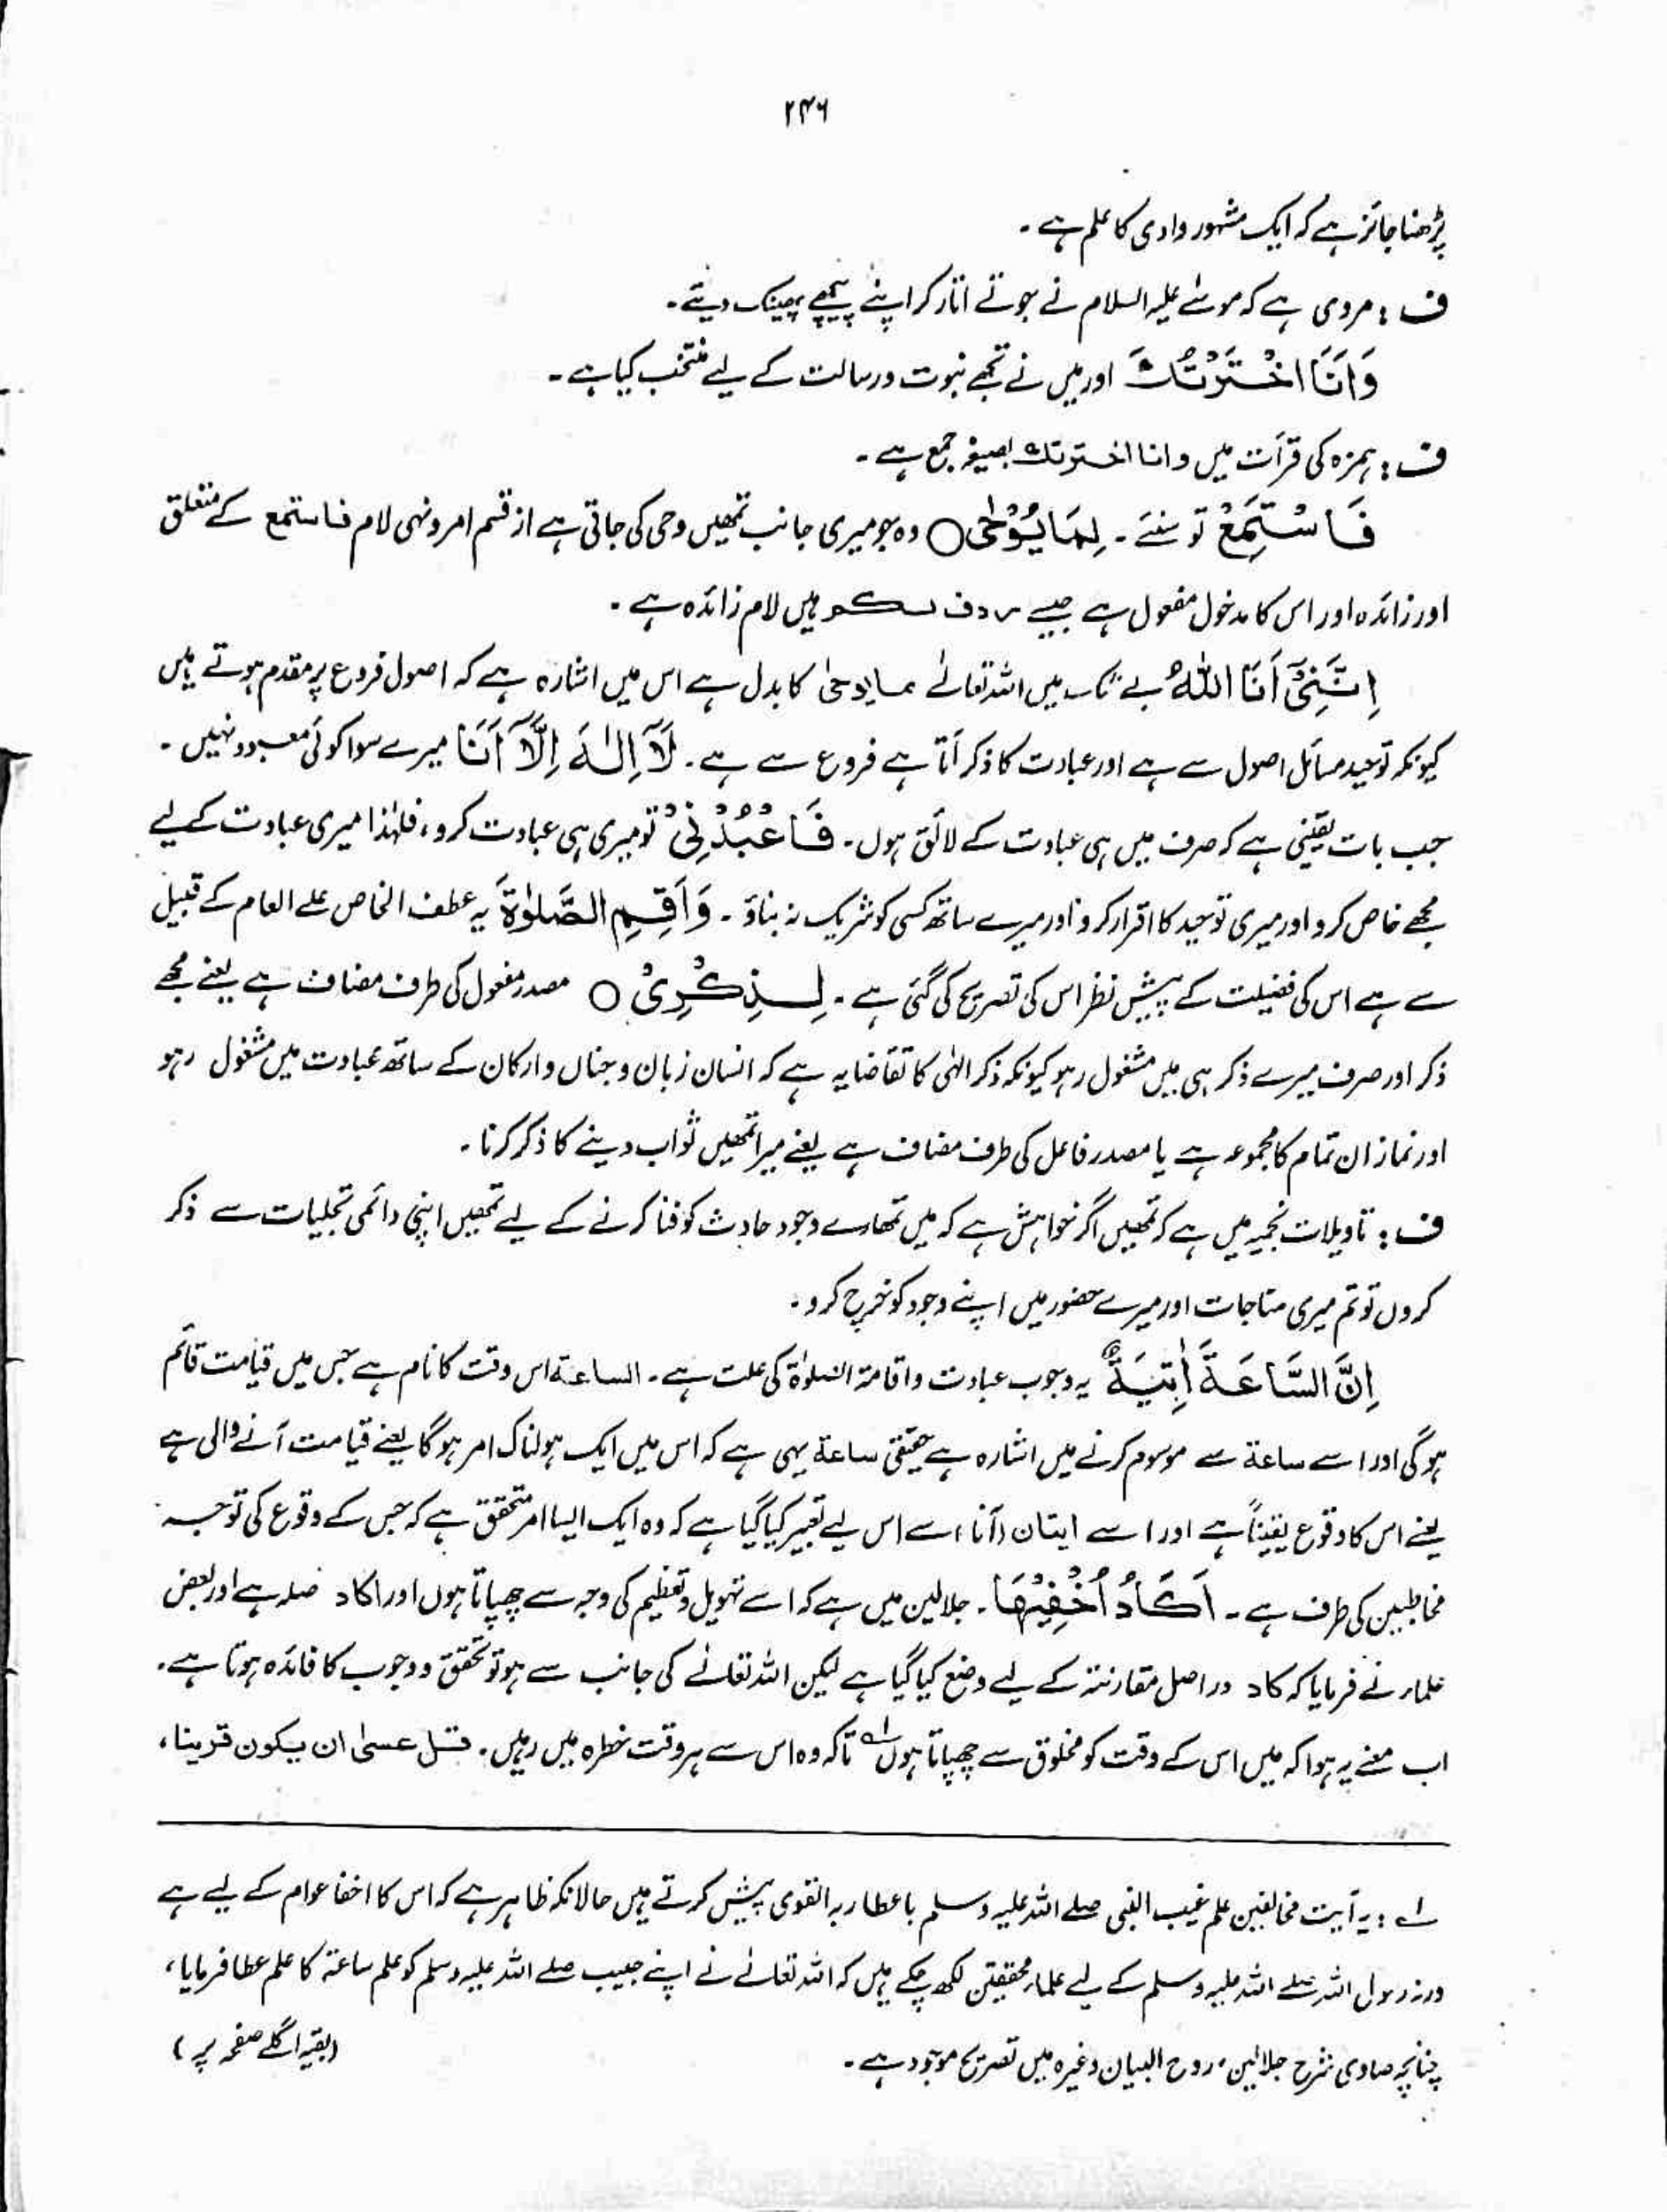 ۲۴۶
پڑھنا جائز ہے کہ ایک مشہور وادی کا علم ہے ۔
ف : مروی ہے کہ موسٰے علیہ السلام نے جوتے اتار کر اپنے پیچھے پھینک دیئے۔
وَاَنَا اخْتَرْتُكَ اور میں نے تجھے نبوت و رسالت کے لیے منتخب کیا ہے ۔
ف : ہمزہ کی قرآت میں وانا اخترتك بصیغہ جمع ہے ۔
فَاسْتَمِعْ تو سنئے ۔ لِمَا يُوْحٰى ○ وہ جو میری جانب تمھیں وحی کی جاتی ہے از قسم امر و نہی لام فاستمع کے متعلق
اور زائدہ اور اس کا مدخول مفعول ہے جیسے ردف لكم میں لام زائدہ ہے ۔
اِنَّنِىْٓ اَنَا اللّٰهُ بے شک میں اللہ تعالٰے مایوحٰی کا بدل ہے اس میں اشارہ ہے کہ اصول فروع پر مقدم ہوتے ہیں
کیونکہ توحید مسائل اصول سے ہے اور عبادت کا ذکر آتا ہے فروع سے ہے ۔ لَآ اِلٰهَ اِلَّآ اَنَا میرے سوا کوئی معبود نہیں ۔
جب بات یقینی ہے کہ صرف میں ہی عبادت کے لائق ہوں ۔ فَاعْبُدْنِىْ تو میری ہی عبادت کرو ، فلہٰذا میری عبادت کے لیے
مجھے خاص کرو اور میری توحید کا اقرار کرو اور میرے ساتھ کسی کو شریک نہ بناؤ ۔ وَاَقِمِ الصَّلٰوةَ یہ عطف الخاص علے العام کے قبیل
سے ہے اس کی فضیلت کے پیش نظر اس کی تصریح کی گئی ہے ۔ لِذِكْرِىْ ○ مصدر مفعول کی طرف مضاف ہے یعنے مجھے
ذکر اور صرف میرے ذکر ہی میں مشغول رہو کیونکہ ذکر الٰہی کا تقاضا یہ ہے کہ انسان زبان و جناں و ارکان کے ساتھ عبادت میں مشغول رہو
اور نماز ان تمام کا مجموعہ ہے یا مصدر فاعل کی طرف مضاف ہے یعنے میرا تمھیں ثواب دینے کا ذکر کرنا ۔
ف : تاویلات نجمیہ میں ہے کہ تمھیں اگر خواہش ہے کہ میں تمھارے وجود حادث کو فنا کرنے کے لیے تمھیں اپنی دائمی تجلیات سے ذکر
کروں تو تم میری مناجات اور میرے حضور میں اپنے وجود کو خرچ کرو ۔
اِنَّ السَّاعَةَ اٰتِيَةٌ یہ وجوب عبادت و اقامۃ الصلوٰۃ کی علت ہے ۔ الساعة اس وقت کا نام ہے جس میں قیامت قائم
ہو گی اور اسے ساعة سے موسوم کرنے میں اشارہ ہے حقیقی ساعة یہی ہے کہ اس میں ایک ہولناک امر ہو گا یعنے قیامت آنے والی ہے
یعنے اس کا وقوع یقیناً ہے اور اسے ایتان (آنا) سے اس لیے تعبیر کیا گیا ہے کہ وہ ایک ایسا امر متحقق ہے کہ جس کے وقوع کی توجہ
مخاطبین کی طرف ہے ۔ اَكَادُ اُخْفِيْهَا ۔ جلالین میں ہے کہ اسے تہویل و تعظیم کی وجہ سے چھپاتا ہوں اور اکاد صلہ ہے اور بعض
علماء نے فرمایا کہ کاد دراصل مقارنتہ کے لیے وضع کیا گیا ہے لیکن اللہ تعالٰے کی جانب سے ہو تو تحقق و وجوب کا فائدہ ہوتا ہے ۔
اب معنے یہ ہوا کہ میں اس کے وقت کو مخلوق سے چھپاتا ہوں لہ تاکہ وہ اس سے ہر وقت خطرہ میں رہیں ۔ قل عسٰی ان یکون قریبا ،
لہ : یہ آیت مخالفین علم غیب النبی صلے اللہ علیہ وسلم باعطا ربہ القوی پیش کرتے ہیں حالانکہ ظاہر ہے کہ اس کا اخفا عوام کے لیے ہے
ورنہ رسول اللہ صلے اللہ علیہ وسلم کے لیے علماء محققین لکھ چکے ہیں کہ اللہ تعالٰے نے اپنے حبیب صلے اللہ علیہ وسلم کو علم ساعۃ کا علم عطا فرمایا ،
چنانچہ صاوی شرح جلالین ، روح البیان وغیرہ میں تصریح موجود ہے ۔
(بقیہ اگلے صفحہ پر)